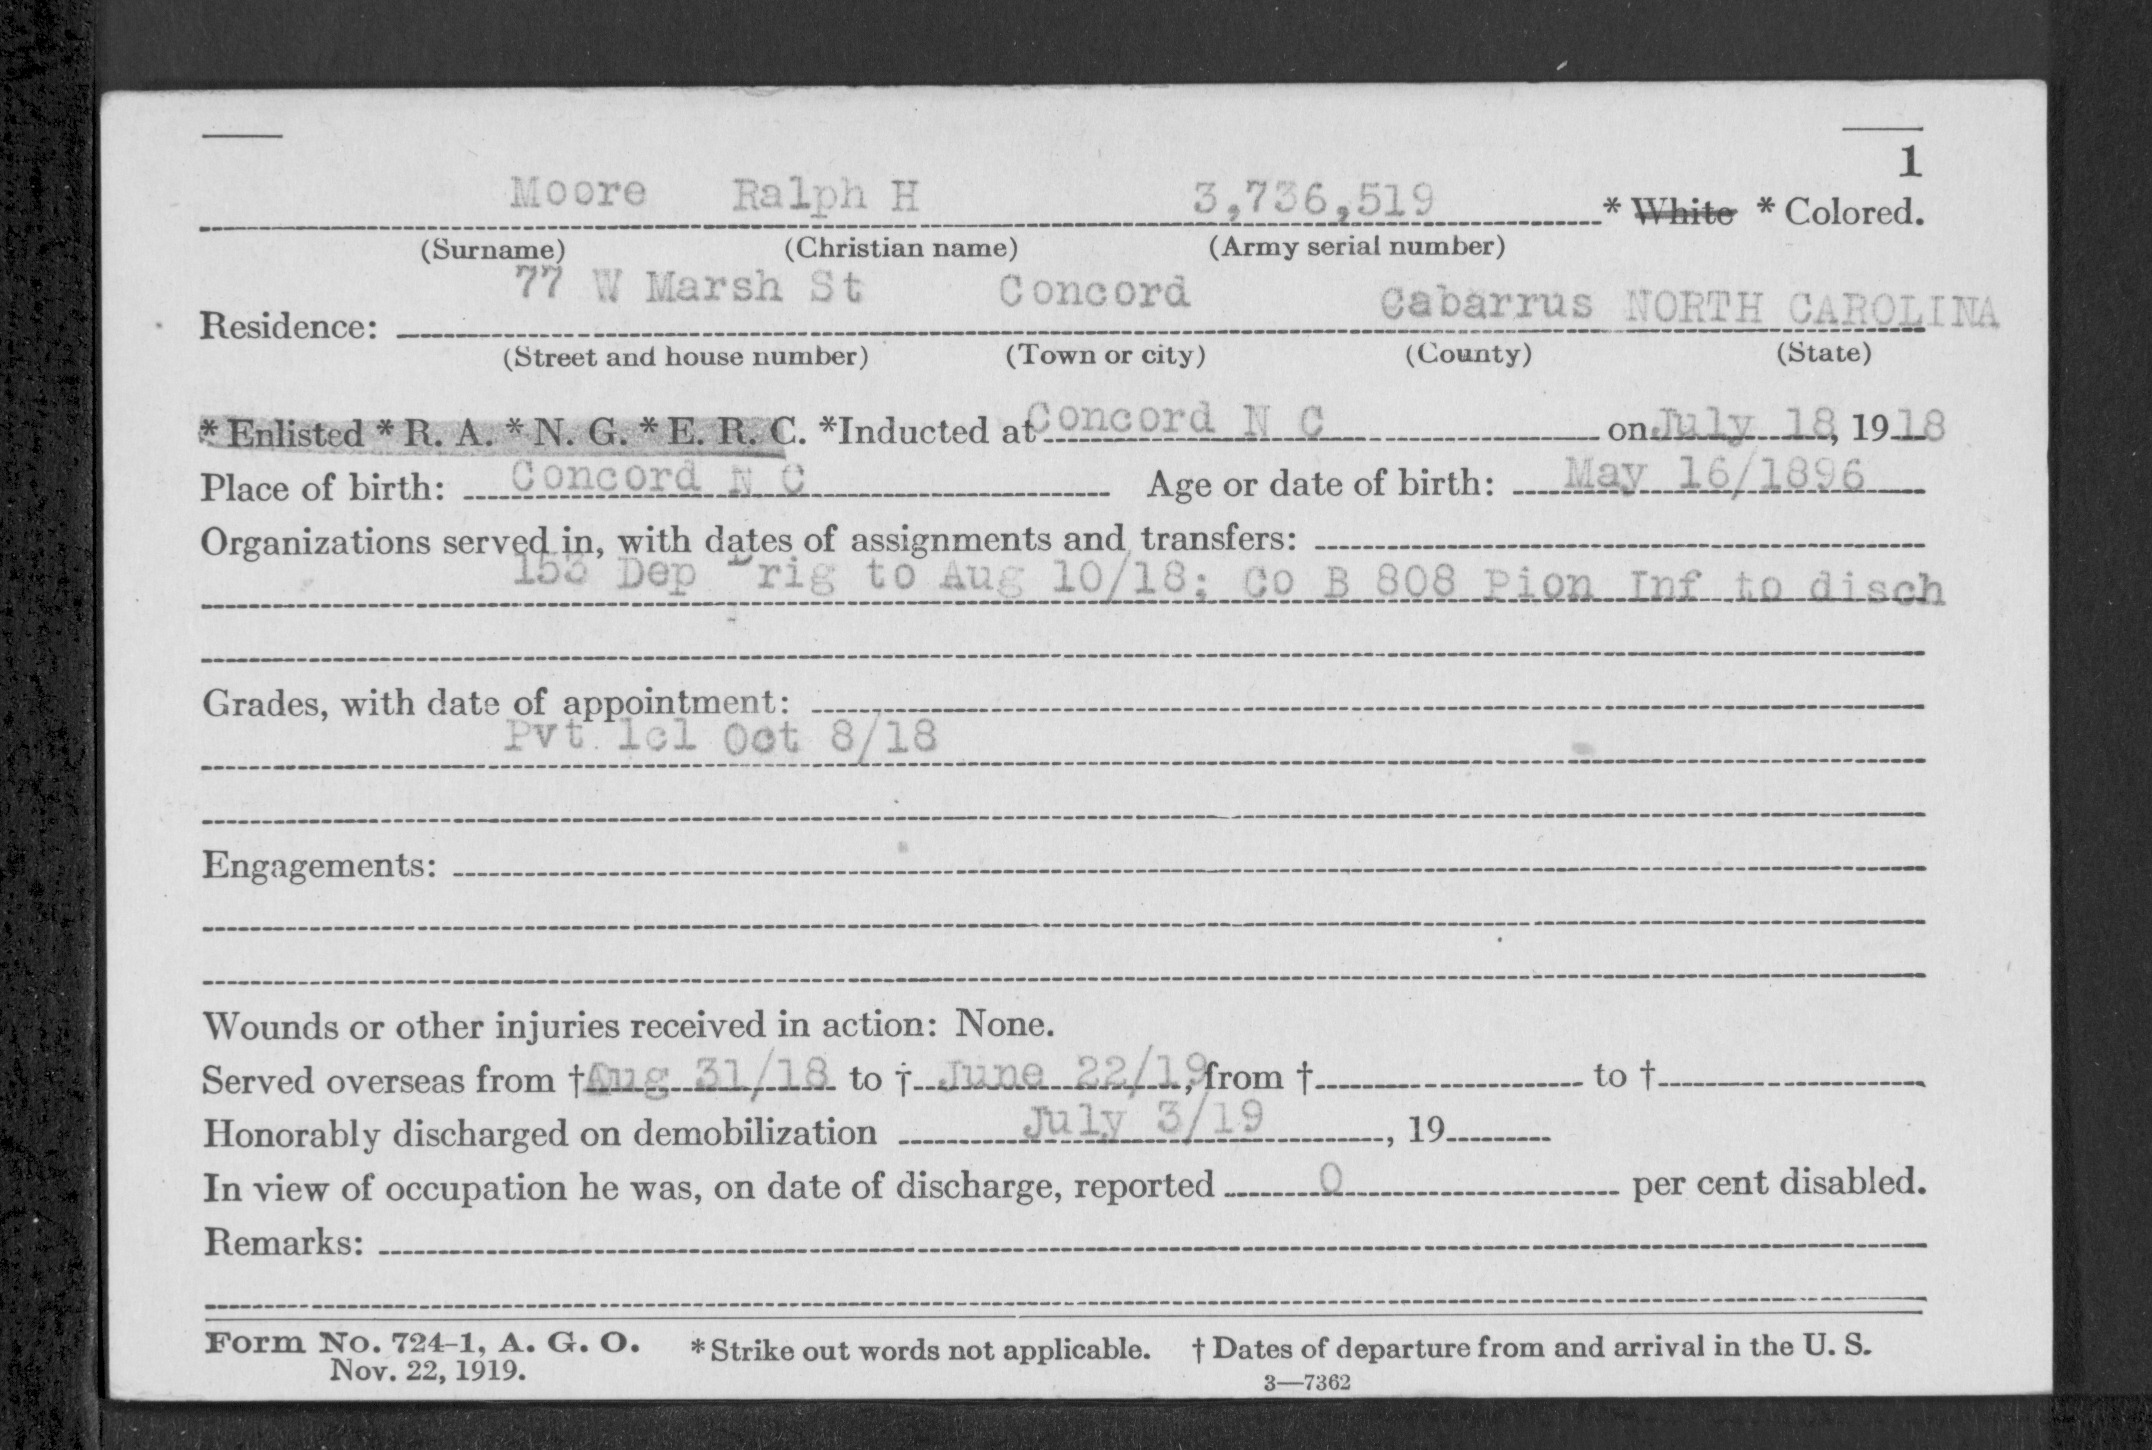 1
Moore Ralph H 3,736,519 * White * Colored.
(Surname) (Christian name) (Army serial number)
77 W Marsh St Concord Cabarrus NORTH CAROLINA
Residence:
(Street and house number) (Town or city) (County) (State)
* Enlisted * R. A. * N. G. * E. R. C. *Inducted at Concord N C on July 18, 1918
Place of birth: Concord N C Age or date of birth: May 16/1896
Organizations served in, with dates of assignments and transfers:
153 Dep Brig to Aug 10/18; Co B 808 Pion Inf to disch
Grades, with date of appointment:
Pvt 1cl Oct 8/18
Engagements:
Wounds or other injuries received in action: None.
Served overseas from † Aug 31/18 to † June 22/19, from † to †
Honorably discharged on demobilization July 3/19, 19
In view of occupation he was, on date of discharge, reported 0 per cent disabled.
Remarks:
Form No. 724-1, A. G. O. * Strike out words not applicable. † Dates of departure from and arrival in the U. S.
Nov. 22, 1919. 3—7362